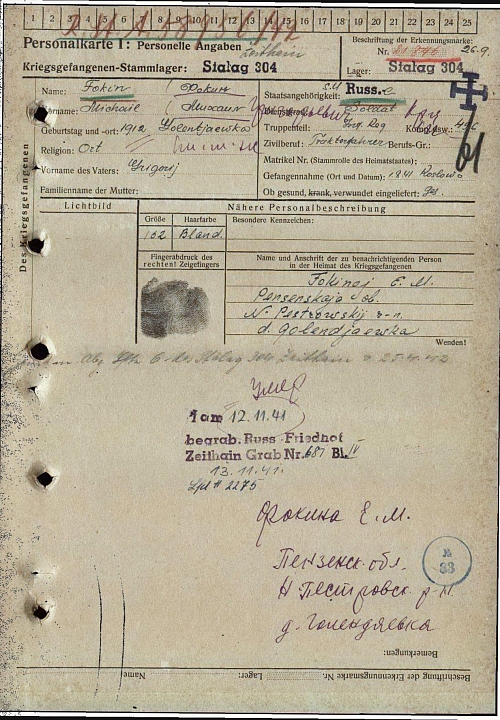 1 2 3 4 5 6 7 8 9 10 11 12 13 14 15 16 17 18 19 20 21 22 23 24 25
Personalkarte I: Personelle Angaben
Zeithain
Kriegsgefangenen-Stammlager: Stalag 304
Beschriftung der Erkennungsmarke:
Nr. 26.9.
Lager: Stalag 304
Des Kriegsgefangenen
Name: Fokin / Фокин
Vorname: Michail / Михаил
Geburtstag und -ort: 1912 Golentjaewka
Religion: Ort
Vorname des Vaters: Grigorj
Familienname der Mutter:
Staatsangehörigkeit: Russ.
Dienstgrad: Soldat
Truppenteil: Inf. Reg Komp. usw.:
Zivilberuf: Traktorfahrer Berufs-Gr.:
Matrikel Nr. (Stammrolle des Heimatstaates):
Gefangennahme (Ort und Datum): 1941
Ob gesund, krank, verwundet eingeliefert: ges.
Lichtbild
Nähere Personalbeschreibung
Größe Haarfarbe Besondere Kennzeichen:
162 Bland
Fingerabdruck des
rechten! Zeigefingers
Name und Anschrift der zu benachrichtigenden Person
in der Heimat des Kriegsgefangenen
Fokinoj E. M.
Pensenskaja obl.
N Pestrowskij r-n.
d. Golendjaewka
Wenden!
умер
am 12.11.41
begrab. Russ Friedhof
Zeithain Grab Nr. 687 Bl. IV
13.11.41.
Lfd # 2275
Фокина Е. М.
№
33
Пензенск. обл.
Н Пестровск. р-н.
д. Голендяевка
Bemerkungen:
Beschriftung der Erkennungsmarke Nr. Lager: Name: